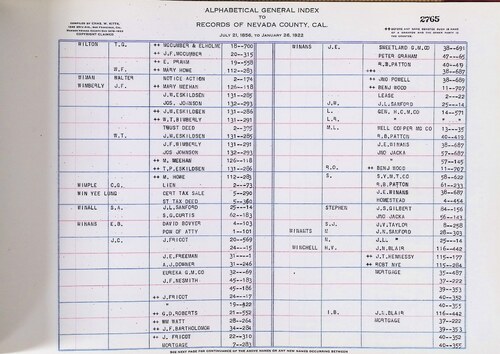 ALPHABETICAL GENERAL INDEX
TO
RECORDS OF NEVADA COUNTY, CAL.
JULY 21, 1856, TO JANUARY 26, 1922
2765
WILTON T.G. ++ MCCUMBER & ELHOLME 18--700
++ J.F.MCCUMBER 20--315
++ E. PRAIN 19--558
S.F. ++ MARY HOME 112--283
WIMAN WALTER NOTICE ACTION 2--174
WIMBERLY J.F. ++ MARY MEEHAN 126--118
++ J.W.ESKILDSEN 131--285
JOS. JOHNSON 132--293
++ J.W.ESKILDSEN 131--286
++ W.T.WIMBERLY 131--291
TRUST DEED 2--375
W.T. ++ J.W.ESKILDSEN 131--285
++ J.F.WIMBERLY 131--291
JOS JOHNSON 132--293
++ M. MEEHAN 126--118
++ T.P.ESKILDSEN 131--286
++ M. HOME 112--283
WIMPLE C.G. LIEN 2--73
WIN YEE LONG CERT TAX SALE 55--290
ST TAX DEED 5--360
WINALL S.A. J.L.SANFORD 25--14
S.G.CURTIS 62--183
WINANS E.B. DAVID BOVYER 4--103
POW OF ATTY 1--101
J.C. J.FRICOT 20--569
" 24--15
J.E.FREEMAN 31--1
A.J.DOWNER 31--246
EUREKA G.M.CO 32--69
J.F.NESMITH 45--183
" 45--186
++ J.FRICOT 24--17
" 19--822
++ G.D.ROBERTS 21--552
++ WM WATT 28--264
++ J.F.BARTHOLOMEW 34--284
++ J. FRICOT 22--310
MORTGAGE 7--283
WINANS J.E. SWEETLAND G.M.CO 38--691
PETER GRAHAM 47--65
R.B.PATTON 40--419
+++ 38--687
++ JNO POWELL 38--689
++ BENJ WOOD 11--707
LEASE 2--22
J.W. J.L.SANFORD 25--14
L. GEN. H.C.M.CO 14--571
L.R. " "
M.L. HELL COOPER MG CO 13--35
R.B.PATTON 40--419
J.E.WINANS 38--687
JNO JACKA 57--687
" 57--145
R.O. ++ BENJ WOOD 11--707
S. S.Y.M.T.CO 58--622
R.B.PATTON 61--233
++ J.E.WINANS 38--687
HOMESTEAD 4--454
STEPHEN J.S.GILBERT 84--156
JNO JACKA 56--143
S.J. J.V.TAYLOR 8--258
WINANTS C J.N.SANFORD 28--303
N. J.L. " 25--14
WINCHELL H.V. J.N.BLAIR 116--442
++ J.T.HENNESSY 115--177
++ ROBT NYE 115--264
MORTGAGE 35--487
37--222
39--353
40--352
40--355
I.B. J.L.BLAIR 116--442
MORTGAGE 37--222
39--353
40--352
40--355
SEE NEXT PAGE FOR CONTINUANCE OF THE ABOVE NAMES OR ANY NEW NAMES OCCURRING BETWEEN